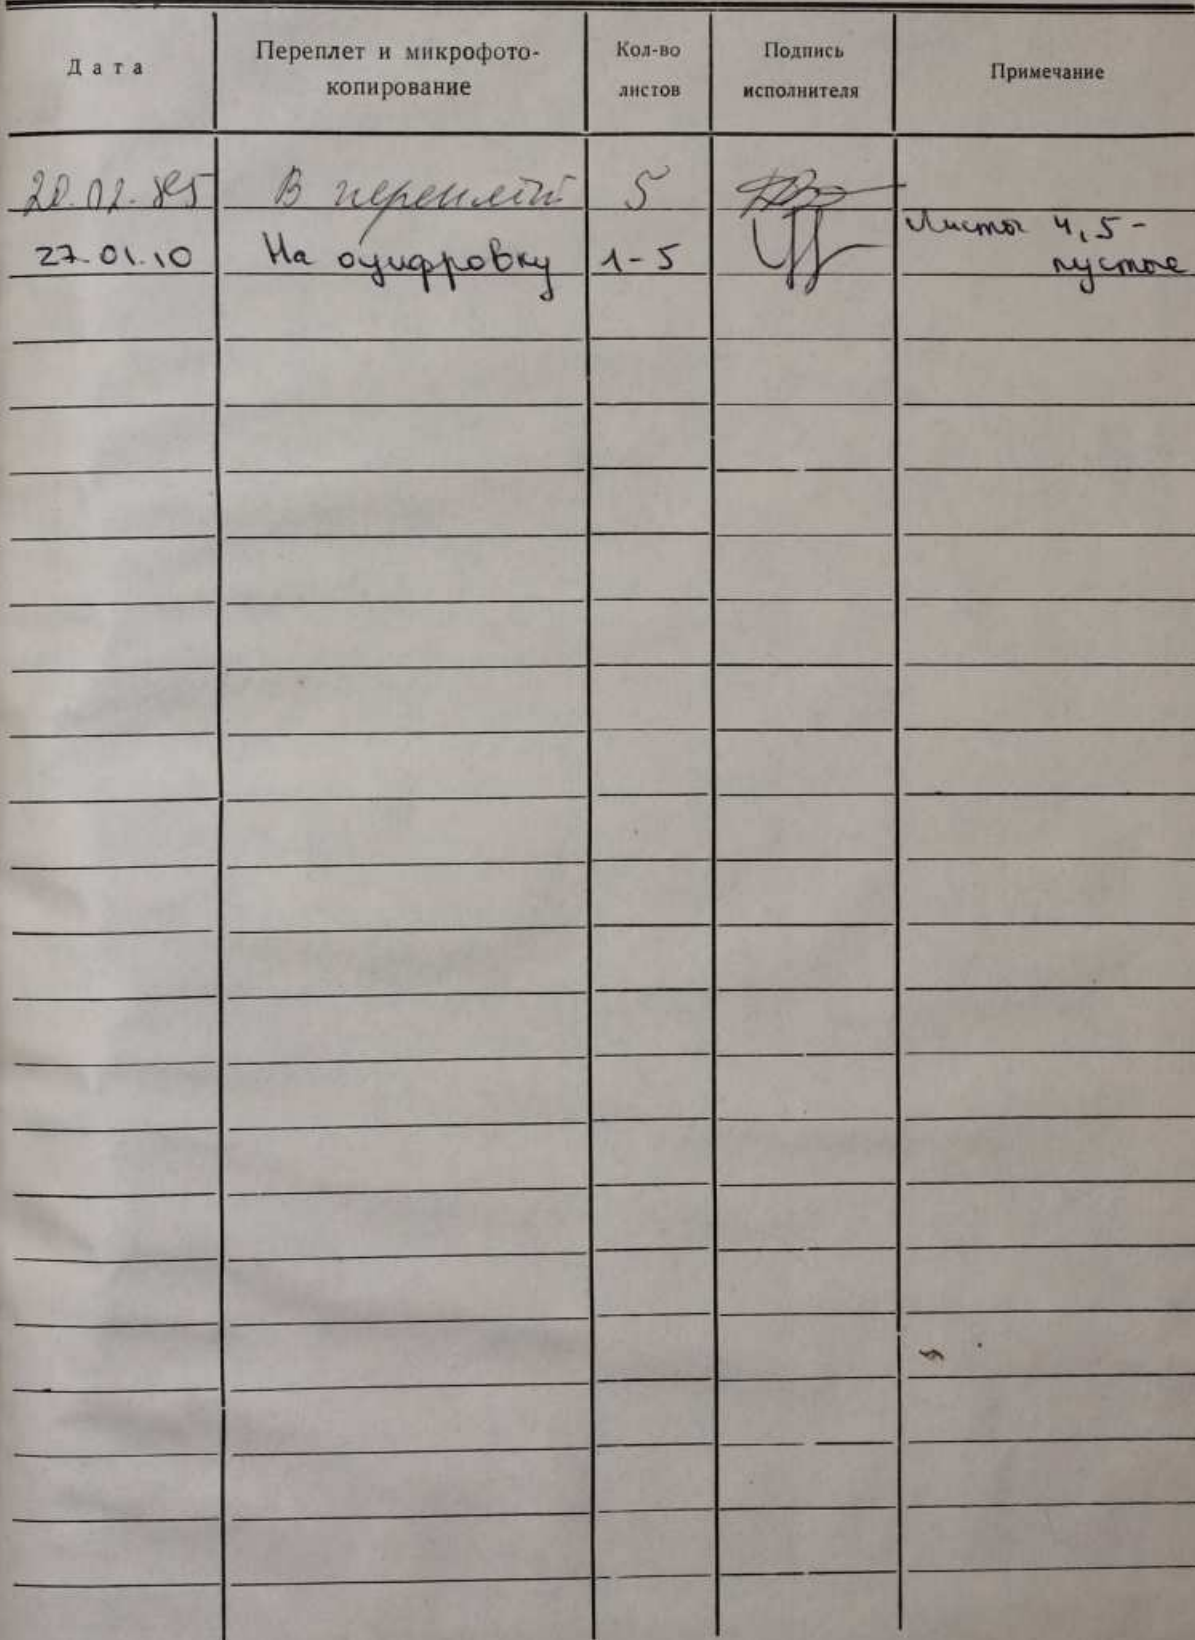 Дата
Переплет и микрофото-
копирование
Кол-во
листов
Подпись
исполнителя
Примечание
В переплёт 5
27.01.10 На оцифровку 1-5
Листы 4,5-
пустые